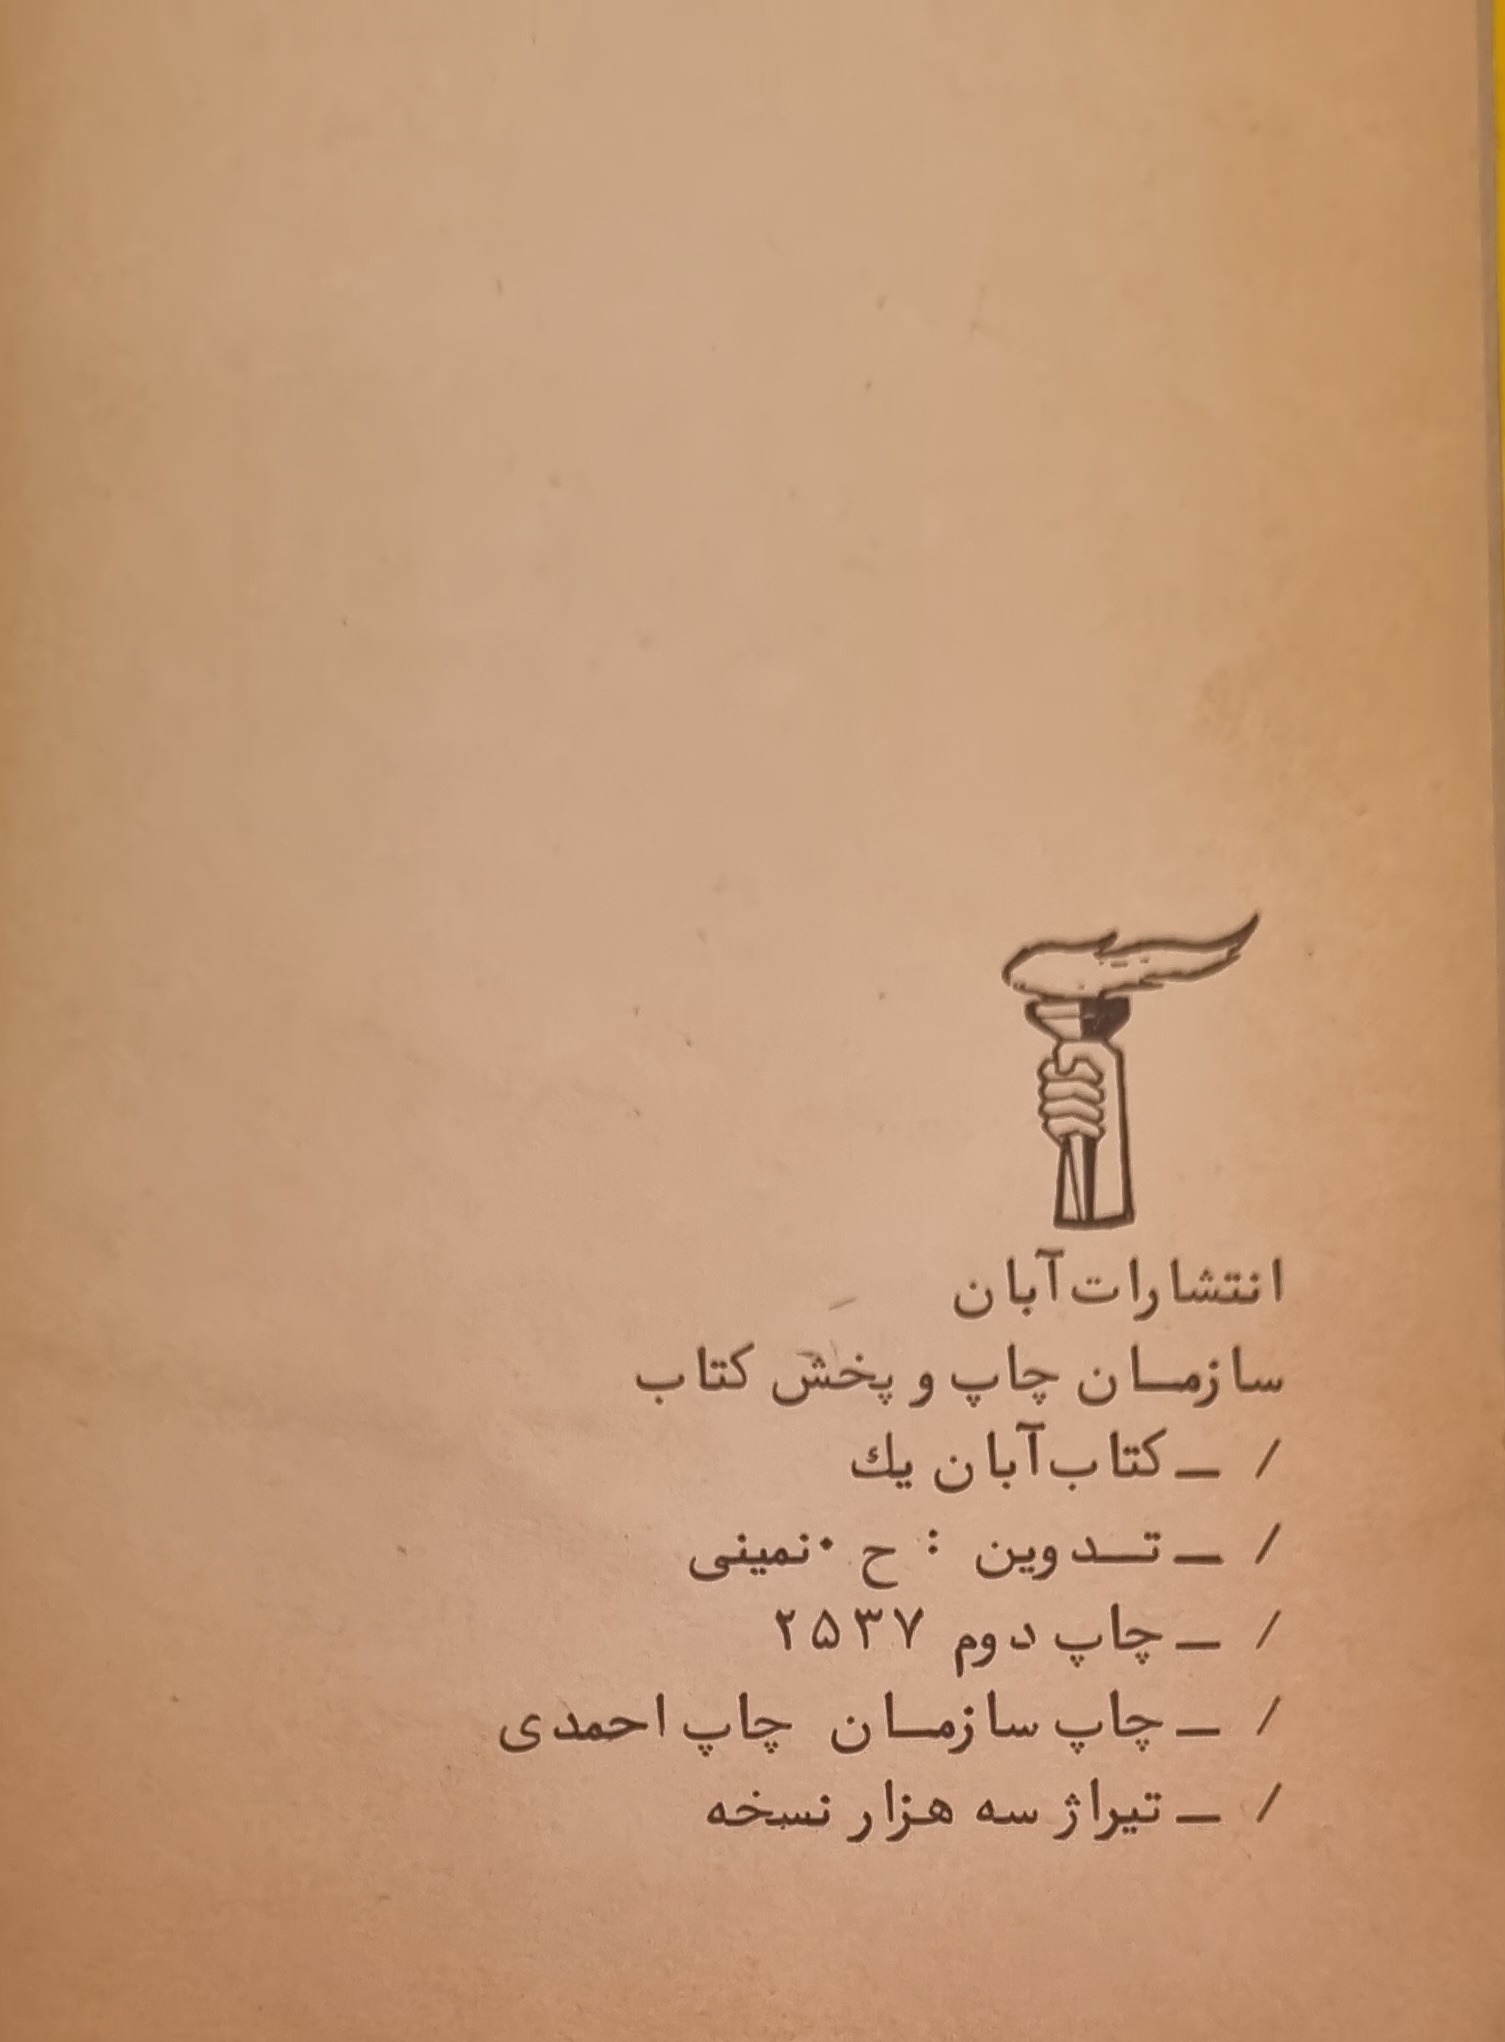 انتشارات آبان
سازمان چاپ و پخش کتاب
/ ــ کتاب آبان یك
/ ــ تدوین : ح ۰ نمینی
/ ــ چاپ دوم ۲۵۳۷
/ ــ چاپ سازمان چاپ احمدی
/ ــ تیراژ سه هزار نسخه